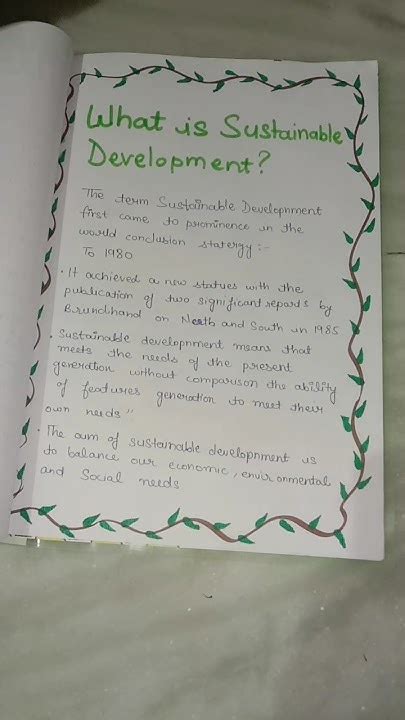 What is Sustainable
Development?
The term Sustainable Development
first came to prominence in the
world conclusion statergy :-
To 1980
• It achieved a new statues with the
publication of two significant repords by
Brundihand on Neath and South in 1985
• Sustainable development means that
meets the needs of the present
generation without comparison the ability
of features generation to meet their
own needs"
• The aim of sustainable development is
to balance our economic, environmental
and Social needs